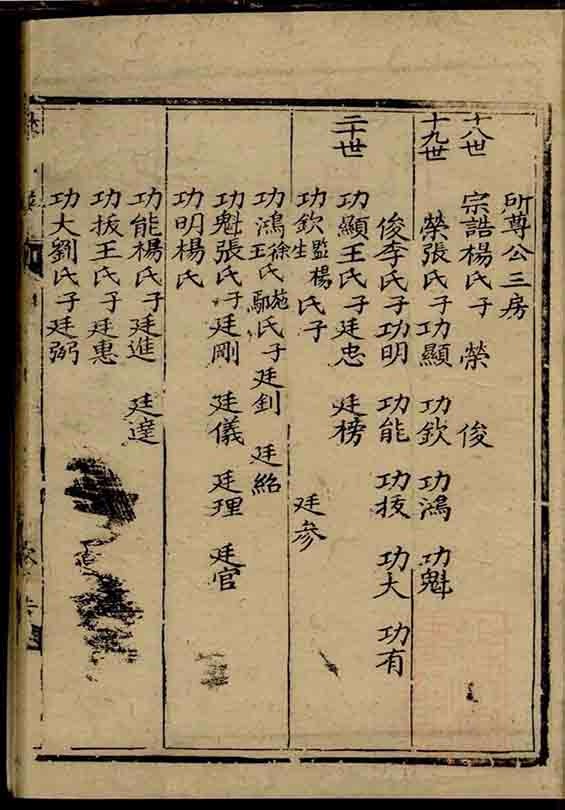 所尊公三房
十八世 宗誥楊氏子 榮 俊
十九世 榮張氏子功顯 功欽 功鴻 功魁
俊李氏子功明 功能 功拔 功大 功有
二十世 功顯王氏子廷忠 廷榜
功欽監生楊氏子 廷參
功鴻徐氏施王氏鄔氏子廷釗 廷紹
功魁張氏子廷剛 廷儀 廷理 廷官
功明楊氏
功能楊氏子廷進 廷達
功拔王氏子廷惠
功大劉氏子廷弼